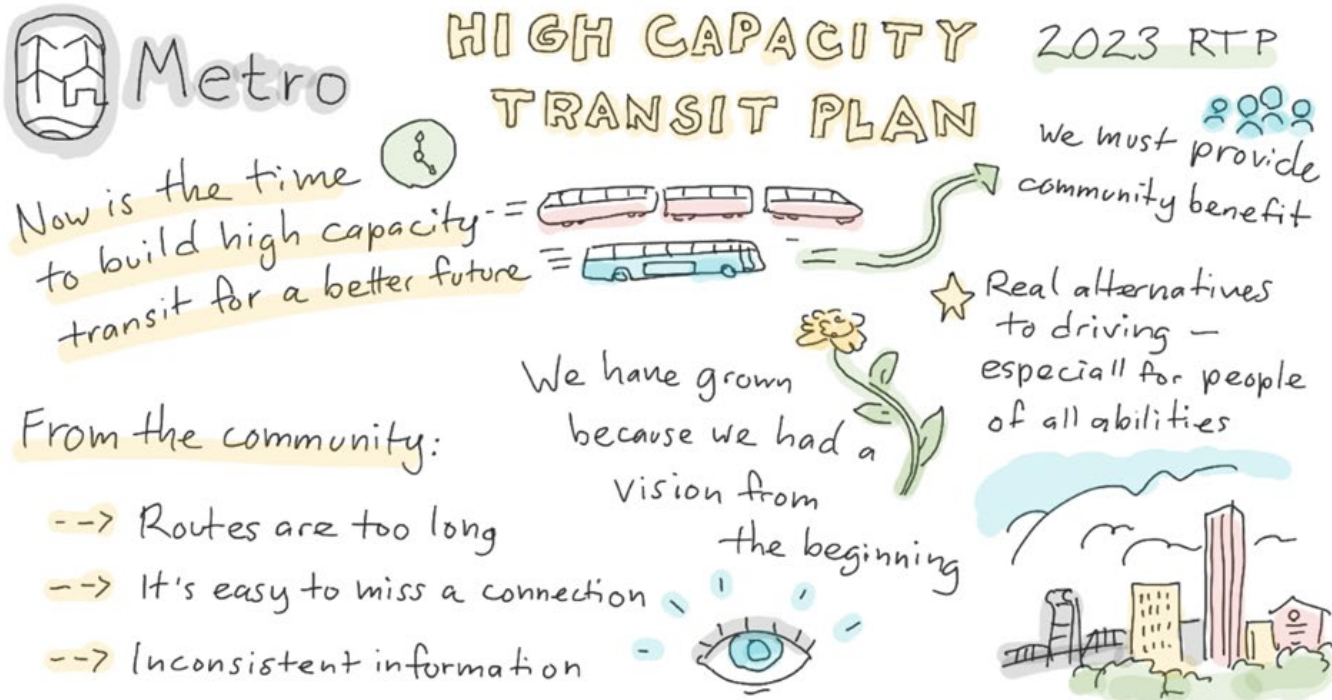 Metro
HIGH CAPACITY
TRANSIT PLAN
2023 RTP
Now is the time
to build high capacity
transit for a better future
We must provide
community benefit
Real alternatives
to driving —
especiall for people
of all abilities
We have grown
because we had a
vision from
the beginning
From the community:
--> Routes are too long
--> It's easy to miss a connection
--> Inconsistent information